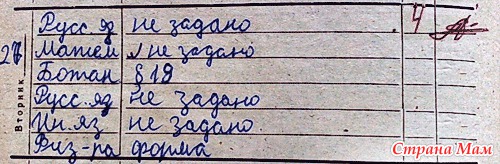 Русс. яз не задано 4
27 Матем не задано
Ботан § 19
Русс. яз не задано
Ин. яз не задано
Физ-ра форма
Вторник
Страна Мам